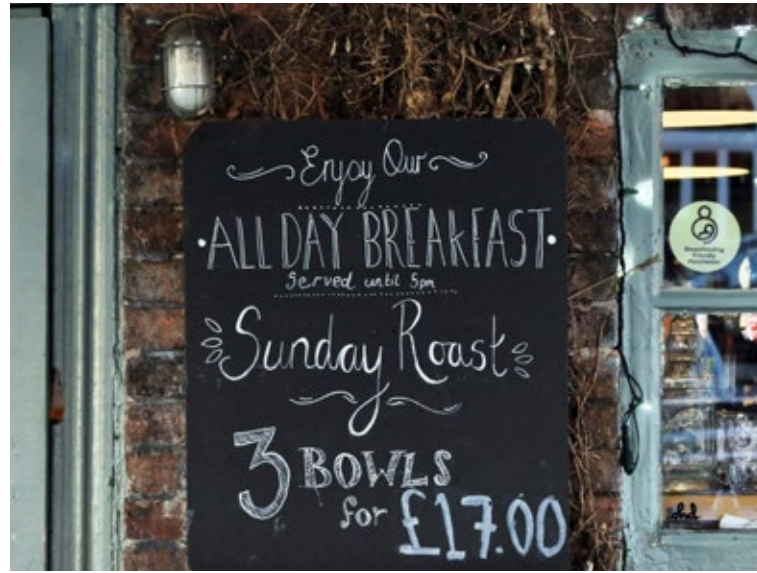 Enjoy Our
ALL DAY BREAKFAST
Served until 5pm
Sunday Roast
3 BOWLS
for £17.00
Breastfeeding
Friendly
Manchester